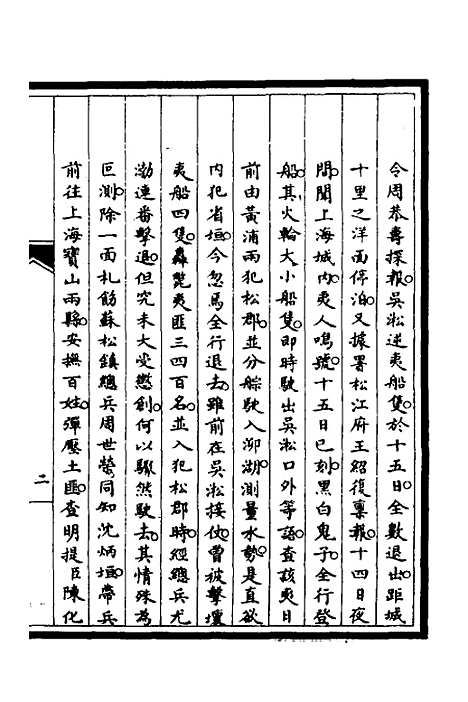 令周恭壽探報吳淞逆夷船隻於十五日全數退出距城
十里之洋面停泊又據署松江府王紹復稟報十四日夜
間聞上海城內夷人鳴號十五日巳刻黑白鬼子全行登
船其火輪大小船隻即時駛出吳淞口外等語查該夷日
前由黃浦兩犯松郡並分䑸駛入泖湖測量水勢是直欲
內犯省垣今忽焉全行退去雖前在吳淞接仗曾被擊壞
夷船四隻轟斃夷匪三四百名並入犯松郡時經總兵尤
渤連番擊退但究未大受懲創何以驟然駛去其情殊為
叵測除一面札飭蘇松鎮總兵周世榮同知沈炳垣帶兵
前往上海寶山兩縣安撫百姓彈壓土匪查明提臣陳化
二